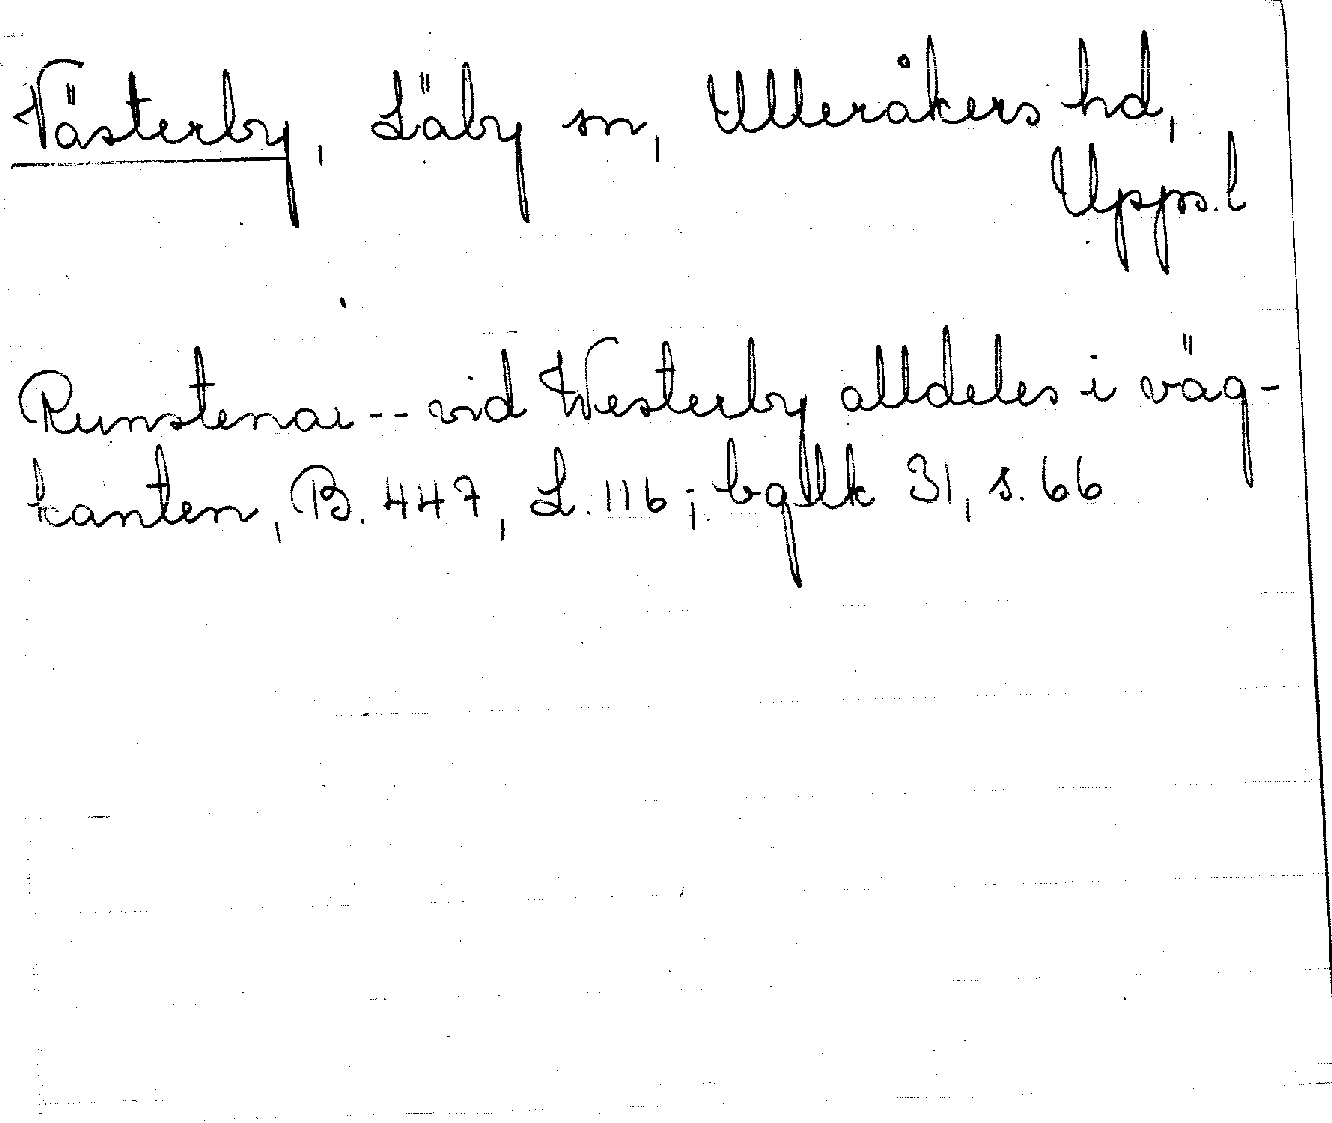 Västerby, Läby sn, Ulleråkers hd,
Upps. l
Runstenar -- vid Westerby alldeles i väg-
kanten, B. 447, L. 116; bqllk 31, s. 66